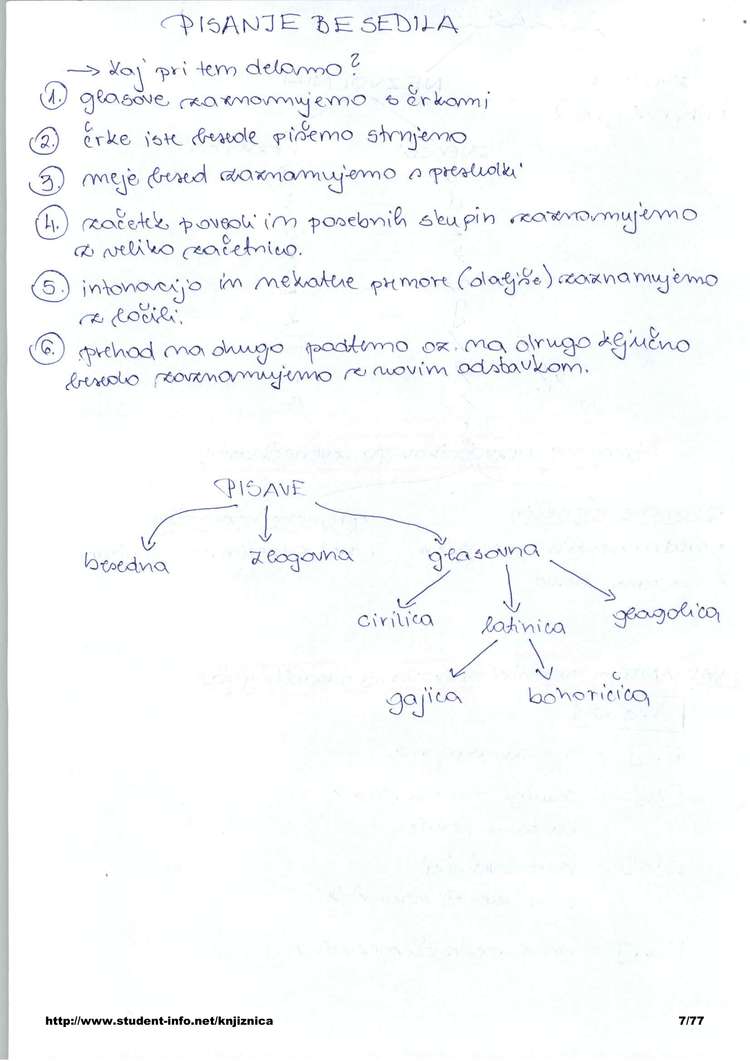 PISANJE BESEDILA
→ Kaj pri tem delamo?
1. glasove zaznamujemo s črkami
2. črke iste besede pišemo strnjeno
3. meje besed zaznamujemo s presledki
4. začetek povedi in posebnih skupin zaznamujemo
z veliko začetnico.
5. intonacijo in nekatere premore (daljše) zaznamujemo
z ločili.
6. prehod na drugo podtemo oz. na drugo ključno
besedo zaznamujemo z novim odstavkom.
PISAVE
besedna zlogovna glasovna
cirilica latinica glagolica
gajica bohoričica
http://www.student-info.net/knjiznica 7/77